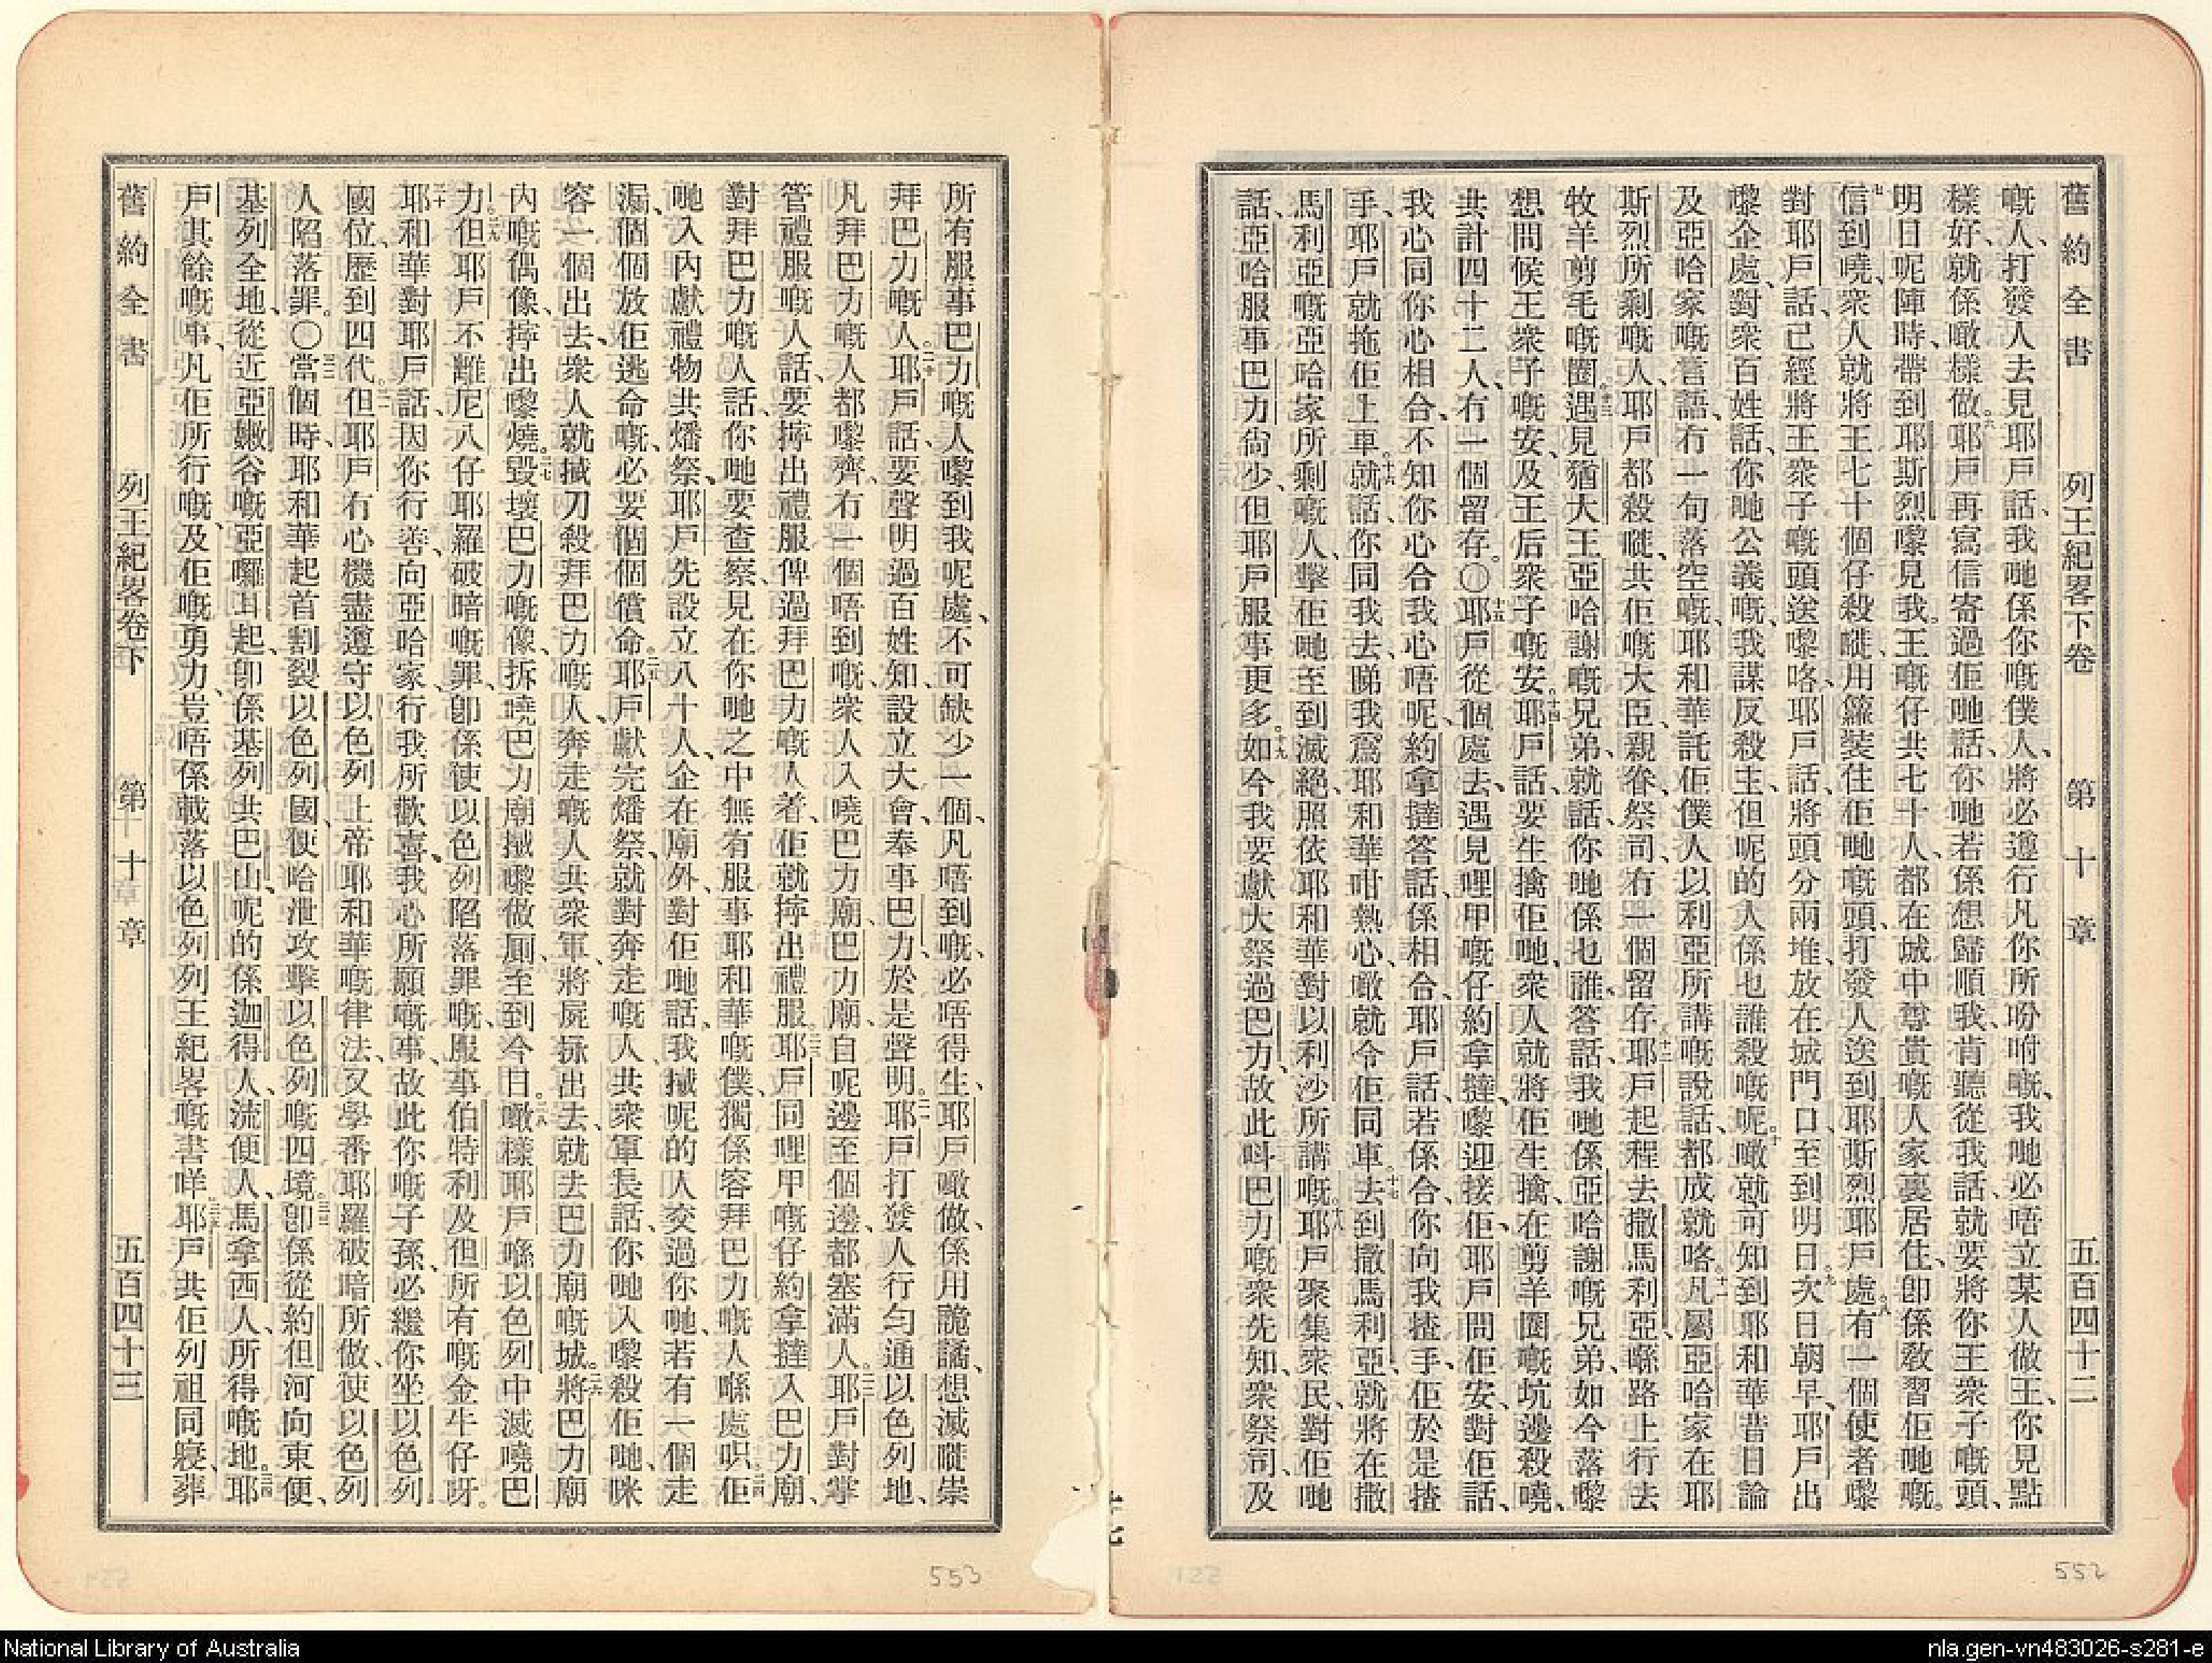 舊約全書 列王紀畧下卷 第十章 五百四十二
嘅人、打發人去見耶戶話、我哋係你嘅僕人、將必遵行凡你所吩咐嘅、我哋必唔立某人做王、你見點
樣好、就係噉樣做。六耶戶再寫信寄過佢哋話、你哋若係想歸順我、肯聽從我話、就要將你王衆子嘅頭、
明日呢陣時、帶到耶斯烈嚟見我。王嘅仔共七十人、都在城中尊貴嘅人家裏居住、卽係敎習佢哋嘅。
七信到嘵、衆人就將王七十個仔殺𡃈、用籮裝住佢哋嘅頭、打發人送到耶斯烈耶戶處。八有一個使者嚟
對耶戶話、已經將王衆子嘅頭送嚟咯、耶戶話、將頭分兩堆、放在城門口至到明日。九次日朝早、耶戶出
嚟企處、對衆百姓話、你哋公義嘅、我謀反殺主、但呢的人係乜誰殺嘅呢。十噉就可知到耶和華昔日論
及亞哈家嘅言語、冇一句落空嘅、耶和華託佢僕人以利亞所講嘅說話、都成就咯。十一凡屬亞哈家在耶
斯烈所剩嘅人、耶戶都殺𡃈、共佢嘅大臣、親眷、祭司、冇一個留存。十二耶戶起程去撒馬利亞、喺路上行去
牧羊剪毛嘅圈。十三遇見猶大王亞哈謝嘅兄弟、就話、你哋係乜誰、答話、我哋係亞哈謝嘅兄弟、如今落嚟
想問候王衆子嘅安、及王后衆子嘅安。十四耶戶話、要生擒佢哋、衆人就將佢生擒、在剪羊圈嘅坑邊殺嘵、
共計四十二人、冇一個留存。〇十五耶戶從個處去、遇見哩甲嘅仔約拿撻嚟迎接佢、耶戶問佢安、對佢話、
我心同你心相合、不知你心合我心唔呢、約拿撻答話、係相合、耶戶話、若係合、你向我揸手、佢於是揸
手、耶戶就拖佢上車。十六就話、你同我去、睇我爲耶和華咁熱心、噉就令佢同車。十七去到撒馬利亞、就將在撒
馬利亞嘅亞哈家所剩嘅人、擊佢哋至到滅絕、照依耶和華對以利沙所講嘅。十八耶戶聚集衆民、對佢哋
話、亞哈服事巴力尙少、但耶戶服事更多。十九如今我要獻大祭過巴力、故此呌巴力嘅衆先知、衆祭司、及
552
所有服事巴力嘅人嚟到我呢處、不可缺少一個、凡唔到嘅、必唔得生、耶戶噉做、係用詭譎、想滅𡃈崇
拜巴力嘅人。二十耶戶話、要聲明過百姓知、設立大會、奉事巴力、於是聲明。二一耶戶打發人行勻通以色列地、
凡拜巴力嘅人都嚟齊、冇一個唔到嘅、衆人入嘵巴力廟、巴力廟自呢邊至個邊、都塞滿人。二二耶戶對掌
管禮服嘅人話、要擰出禮服俾過拜巴力嘅人着、佢就擰出禮服。二三耶戶同哩甲嘅仔約拿撻入巴力廟、
對拜巴力嘅人話、你哋要查察、見在你哋之中、無有服事耶和華嘅僕、獨係容拜巴力嘅人喺處呮。二四佢
哋入內獻禮物共燔祭、耶戶先設立八十人、企在廟外、對佢哋話、我㨢呢的人交過你哋、若有一個走
漏、個個放佢逃命嘅、必要個個償命。二五耶戶獻完燔祭、就對奔走嘅人、共衆軍長話、你哋入嚟殺佢哋、咪
容一個出去、衆人就㨢刀殺拜巴力嘅人、奔走嘅人共衆軍、將屍㧒出去、就去巴力廟嘅城。二六將巴力廟
內嘅偶像、擰出嚟燒。二七毀壞巴力嘅像、拆嘵巴力廟㨢嚟做厠、至到今日。二八噉樣耶戶喺以色列中滅嘵巴
力。二九但耶戶不離尼八仔耶羅破暗嘅罪、卽係使以色列陷落罪嘅、服事伯特利及但所有嘅金牛仔呀。
三十耶和華對耶戶話、因你行善、向亞哈家、行我所歡喜、我心所願嘅事、故此你嘅子孫、必繼你坐以色列
國位、歷到四代。三一但耶戶冇心機盡遵守以色列上帝耶和華嘅律法、又學番耶羅破暗所做、使以色列
人陷落罪。〇三二當個時、耶和華起首割裂以色列國、使哈泄攻擊以色列嘅四境。三三卽係從約但河向東便、
基列全地、從近亞嫩谷嘅亞囉耳起、卽係基列共巴山、呢的係迦得人、流便人、馬拿西人、所得嘅地。三四耶
戶其餘嘅事、凡佢所行嘅、及佢嘅勇力、豈唔係載落以色列列王紀畧嘅書咩。三五耶戶共佢列祖同寢、葬
舊約全書 列王紀畧卷下 第十章 五百四十三
553
National Library of Australia
nla.gen-vn483026-s281-e